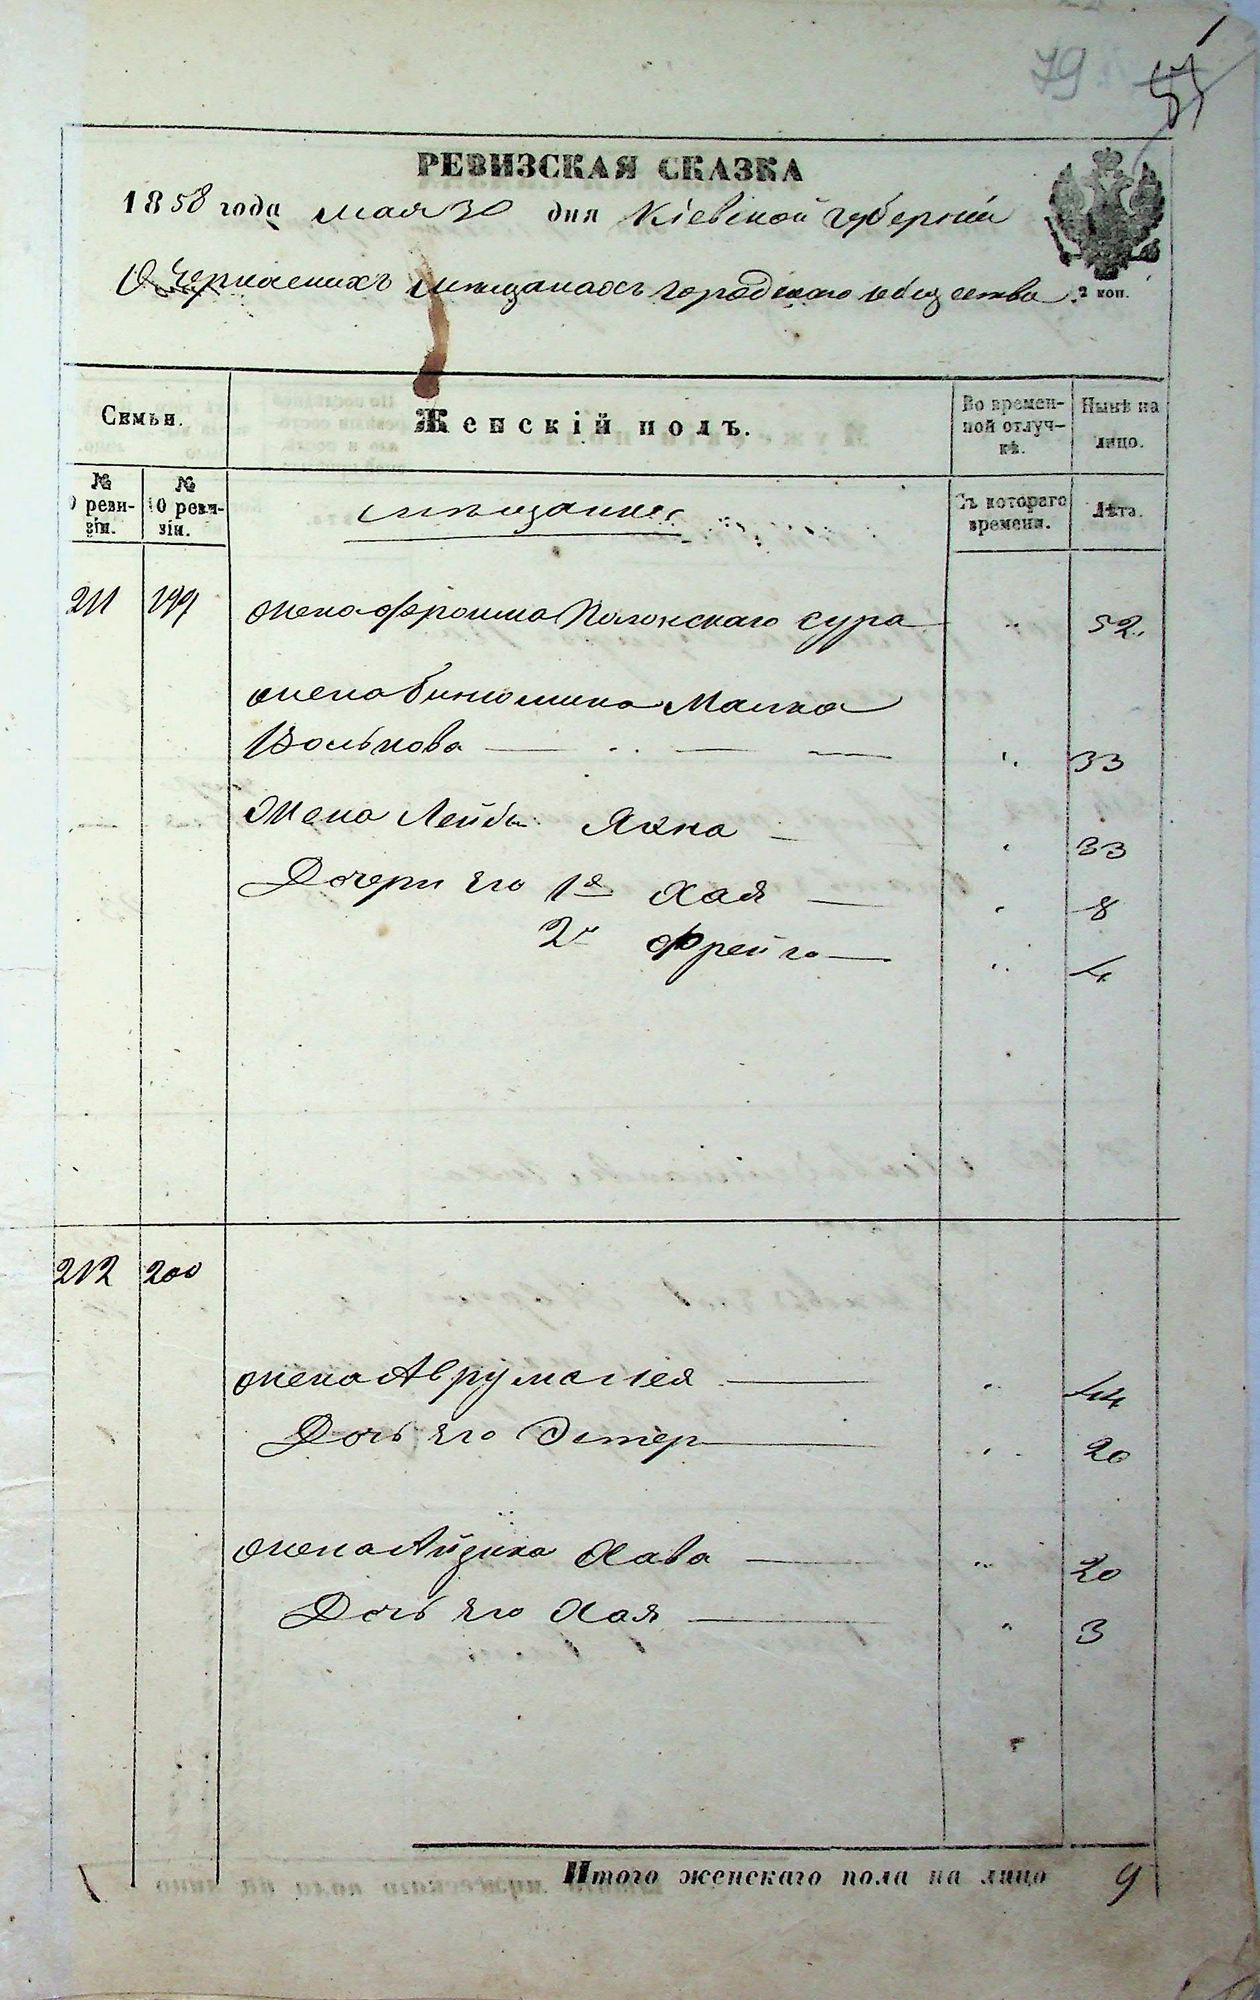 79
РЕВИЗСКАЯ СКАЗКА
1858 года мая 30 дня Кіевской губерніи
О Черкаскихъ мещанахъ городскаго общества
2 коп.
Семьи.
Женскій полъ.
Во времен-
ной отлуч-
кѣ.
Нынѣ на
лицо.
№
О реви-
зіи.
№
10 реви-
зіи.
мещанинъ
Съ котораго
времени.
Лѣта.
211 199 жена Фроима Полонскаго Сура " 52.
жена Бинюмина Малка
Волькова " 33
Жена Лейбы Яхна " 33
Дочери его 1я Хая " 8
2я Фрейга " 4
212 200
жена Аврума Лея " 44
Дочь его Эстер " 20
жена Айзика Хава " 20
Дочь его Хая " 3
Итого женскаго пола на лицо 9